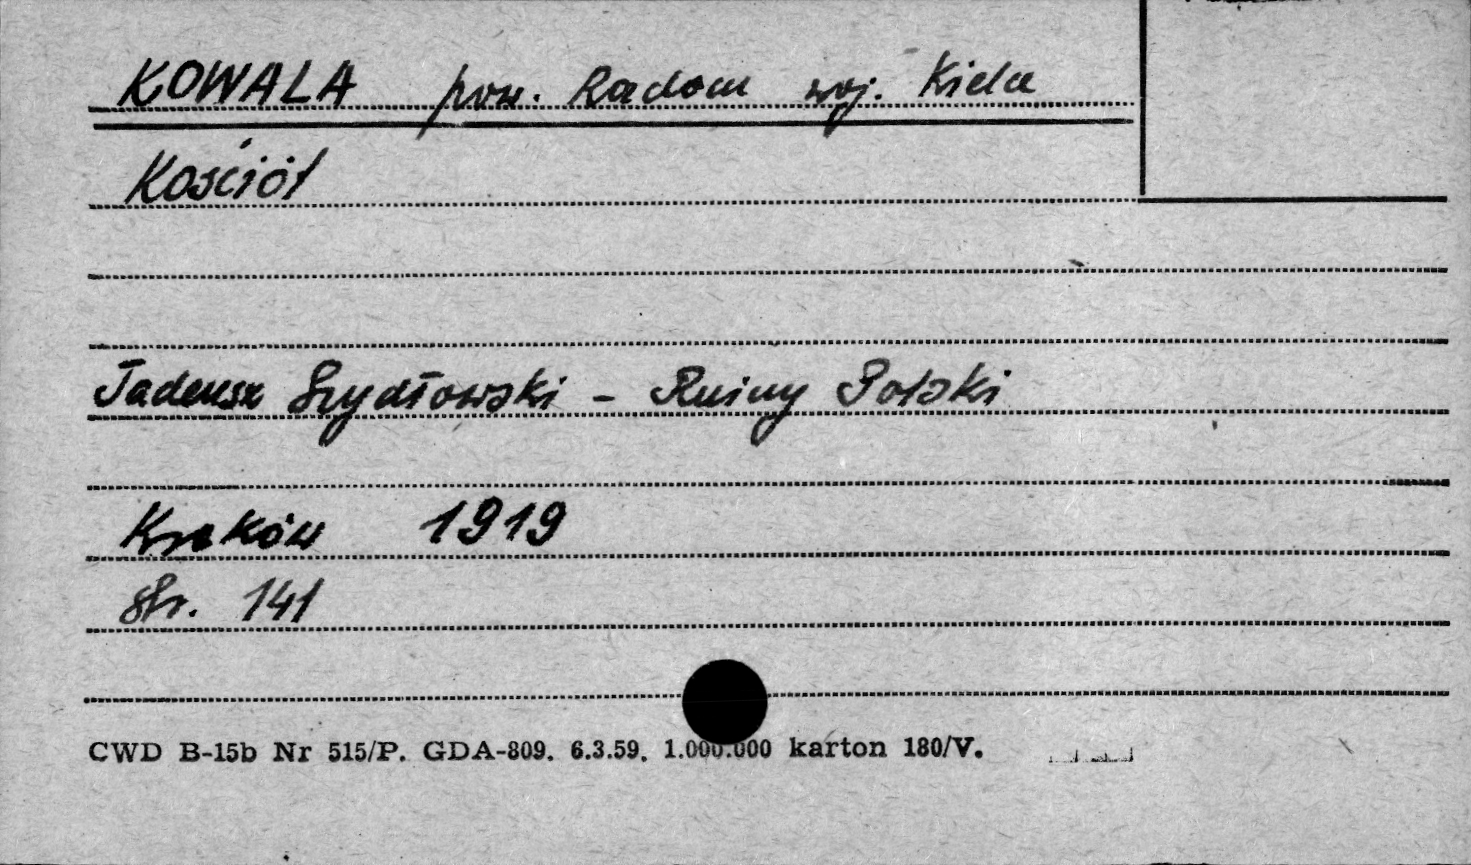 KOWALA pow. Radom woj. Kielce
Kościół
Tadeusz Szydłowski - Ruiny Polski
Kraków 1919
Str. 141
CWD B-15b Nr 515/P. GDA-809. 6.3.59. 1.000.000 karton 180/V.